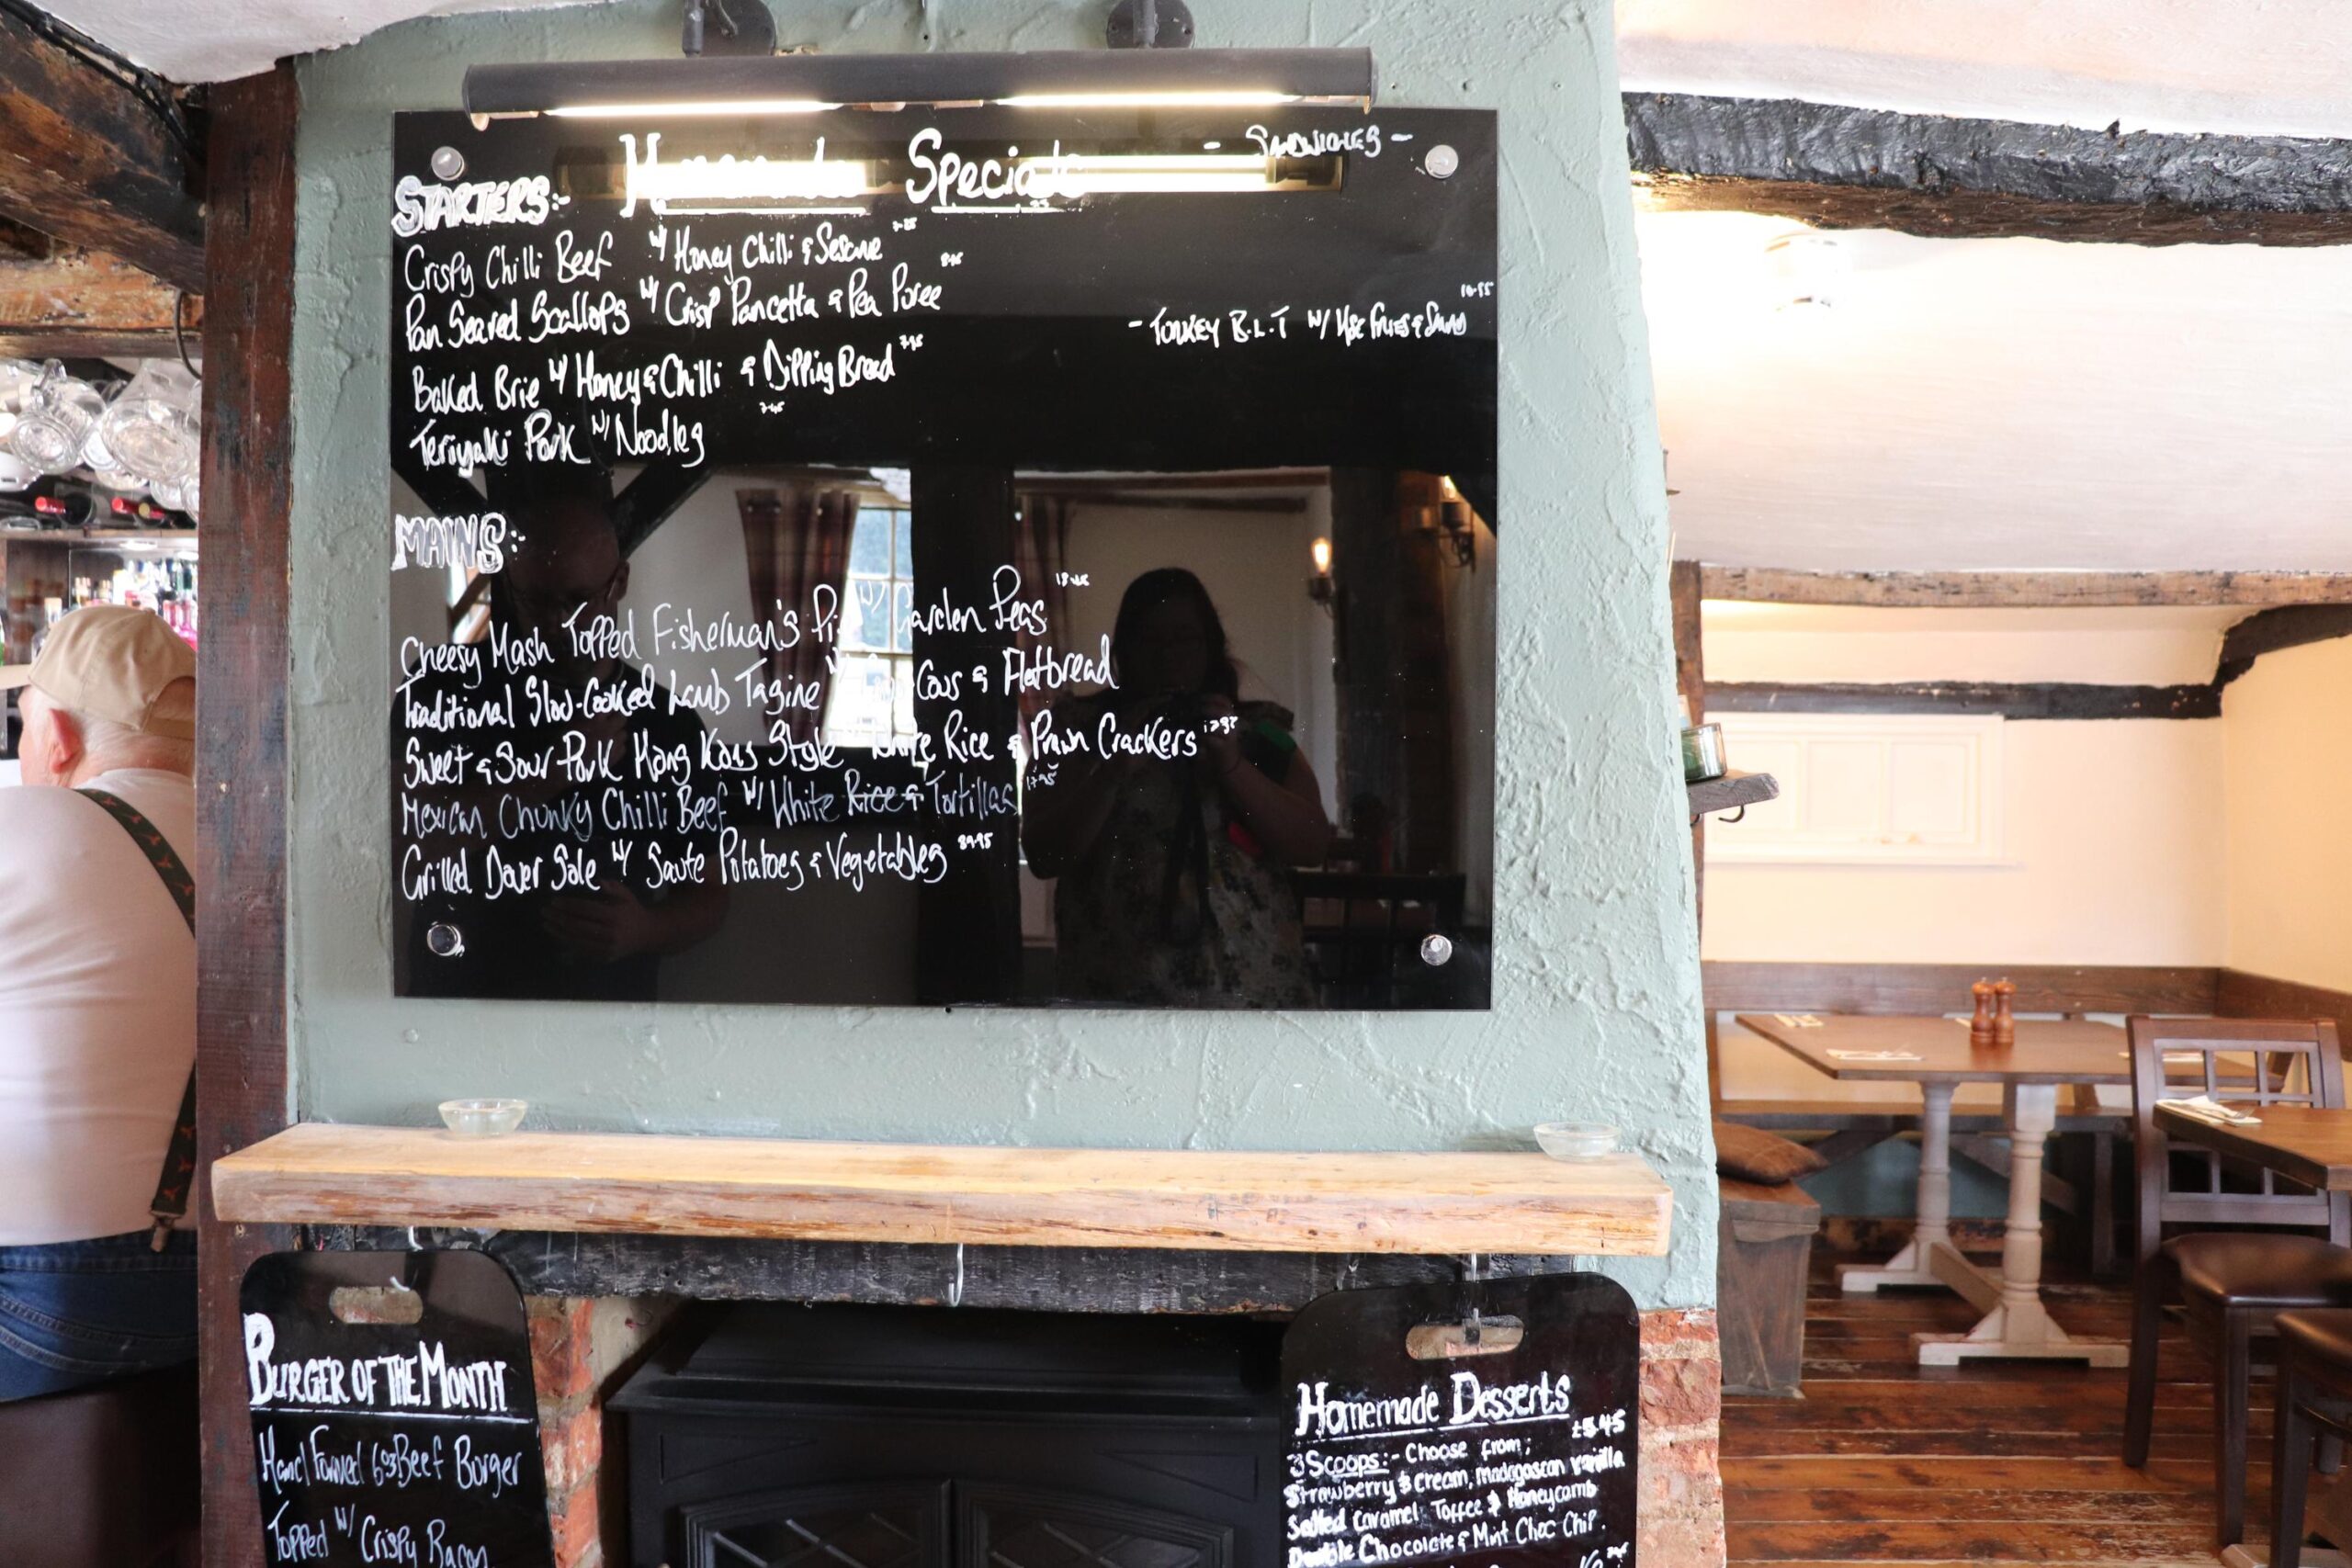 Homemade Specials
- SANDWICHES -
STARTERS:-
Crispy Chilli Beef w/ Honey Chilli & Sesame
Pan Seared Scallops w/ Crisp Pancetta & Pea Puree
Baked Brie w/ Honey & Chilli & Dipping Bread
Teriyaki Pork w/ Noodles
- TURKEY B.L.T w/ H&C FRIES & SALAD
MAINS:-
Cheesy Mash Topped Fisherman's Pie w/ Garden Peas
Traditional Slow-Cooked Lamb Tagine w/ Cous & Flatbread
Sweet & Sour Pork Hong Kong Style White Rice & Prawn Crackers
Mexican Chunky Chilli Beef w/ White Rice & Tortillas 17.95
Grilled Dover Sole w/ Saute Potatoes & Vegetables
BURGER OF THE MONTH
Hand Formed 6oz Beef Burger
Topped w/ Crispy Bacon
Homemade Desserts
£5.45
3 Scoops:- Choose from;
Strawberry & Cream, Madagascan vanilla
Salted Caramel Toffee & Honeycomb
Double Chocolate & Mint Choc Chip.